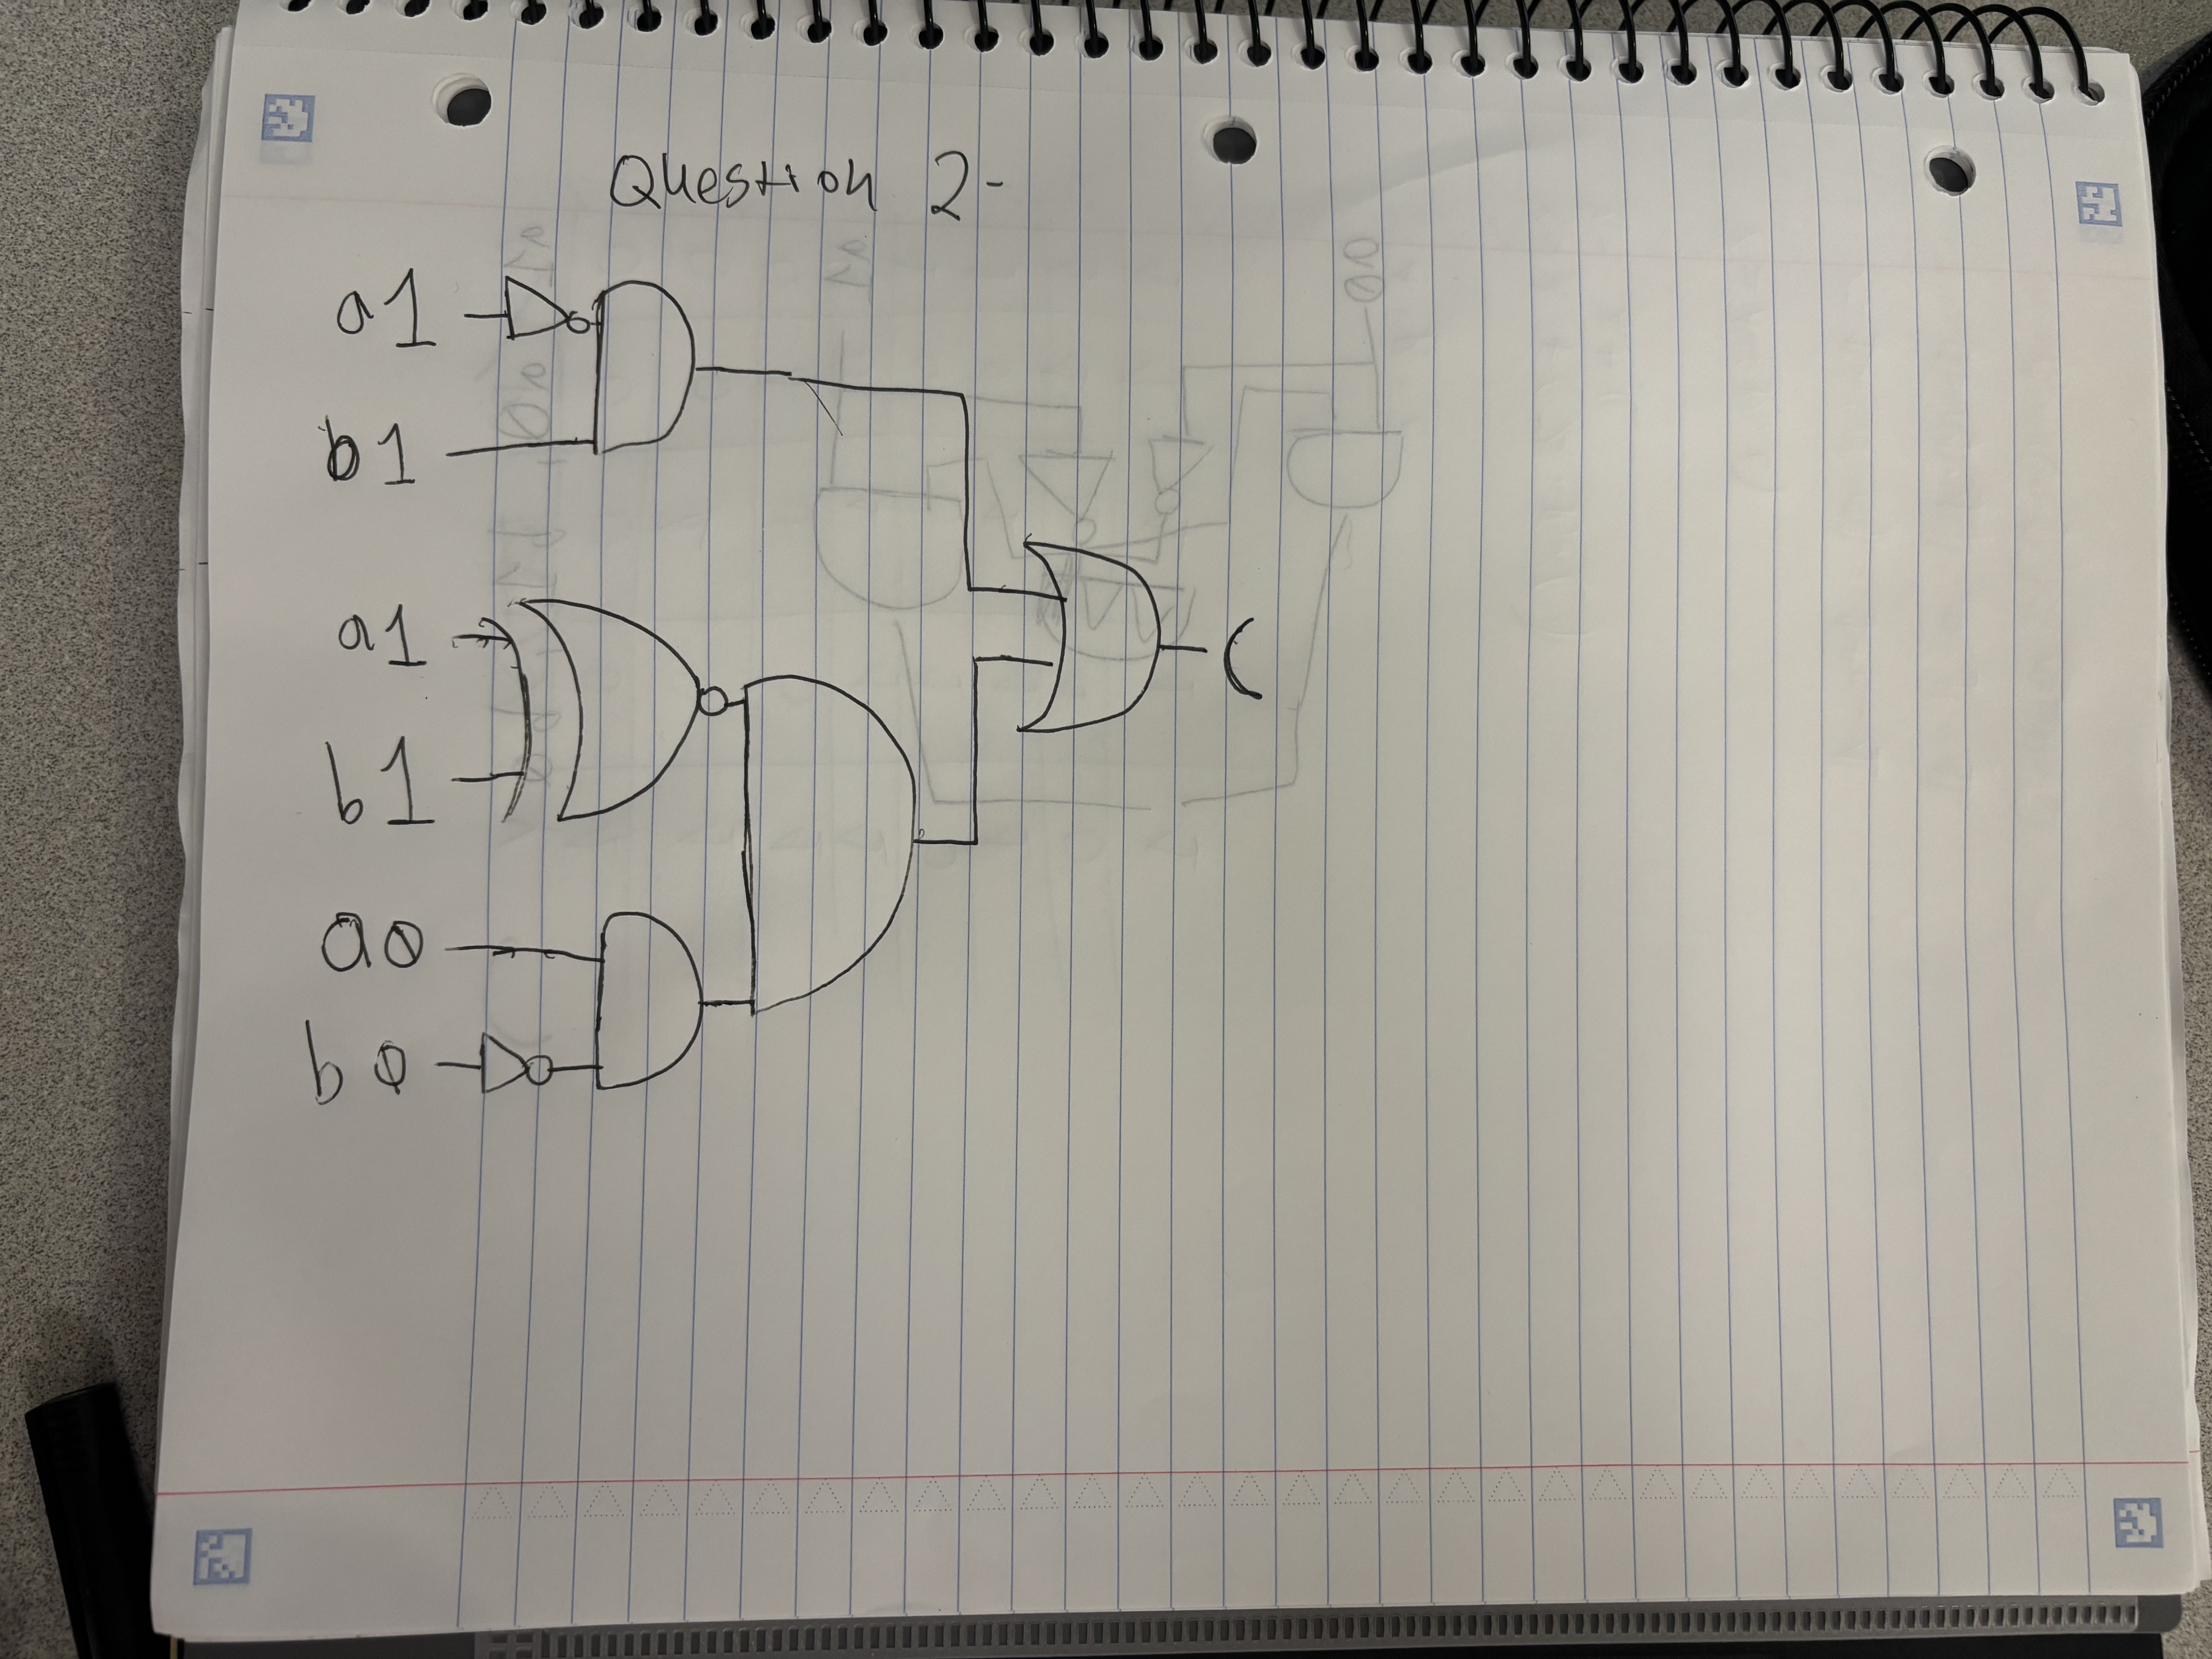 Question 2-
a1
b1
a1
b1
a0
b0
C